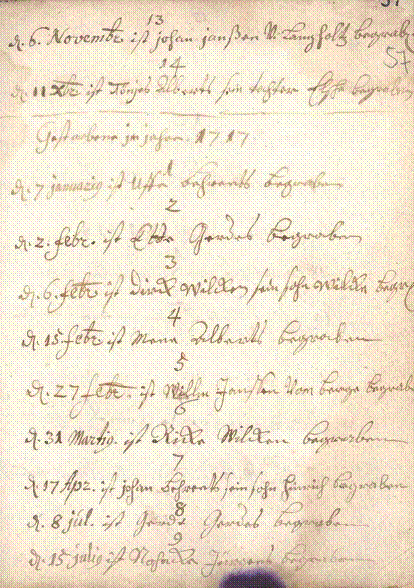 13
d. 6. Novembr ist johan janßen V. Langholtz begraben
57
14
d. 11 Xbr ist Tönjes Alberts sein tochter begraben
Gestorbene in jahr. 1717.
1
d. 7 januarÿ ist Uffe Behrents begraben
2
d. 2. febr. ist Ette Gerdes begraben
3
d. 6. febr ist Dirck Wilcken sein sohn Wilcke begra
4
d. 15 febr ist Mene Alberts begraben
5
d. 27 febr. ist Willm Janssen Vom berge begrabe
6
d. 31 Martÿ. ist Rixte Wilcken begraben
7
d. 17 Apr. ist johan Behrents sein sohn Hinrich begraben
8
d. 8 jul. ist Gerdt Gerdes begraben
9
d. 15 julÿ ist Jürgens begraben